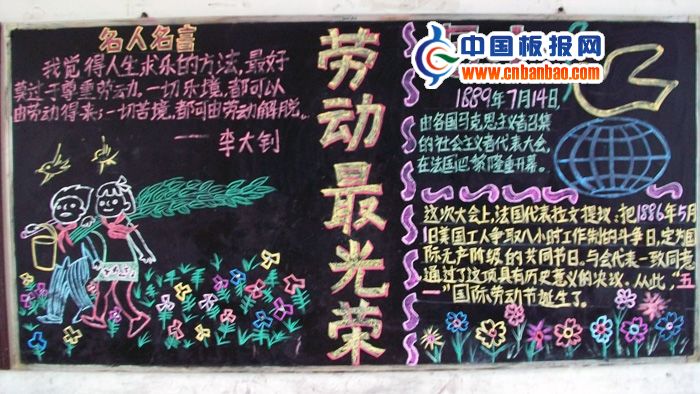 名人名言
我觉得人生求乐的方法,最好
莫过于尊重劳动。一切乐境,都可以
由劳动得来;一切苦境,都可由劳动解脱。
——李大钊
劳动最光荣
中国板报网
www.cnbanbao.com
1889年7月14日,
由各国马克思主义者召集
的社会主义者代表大会,
在法国巴黎隆重开幕。
这次大会上,法国代表拉文提议:把1886年5月
1日美国工人争取八小时工作制的斗争日,定为国
际无产阶级的共同节日。与会代表一致同意
通过了这项具有历史意义的决议。从此,“五
一”国际劳动节诞生了。